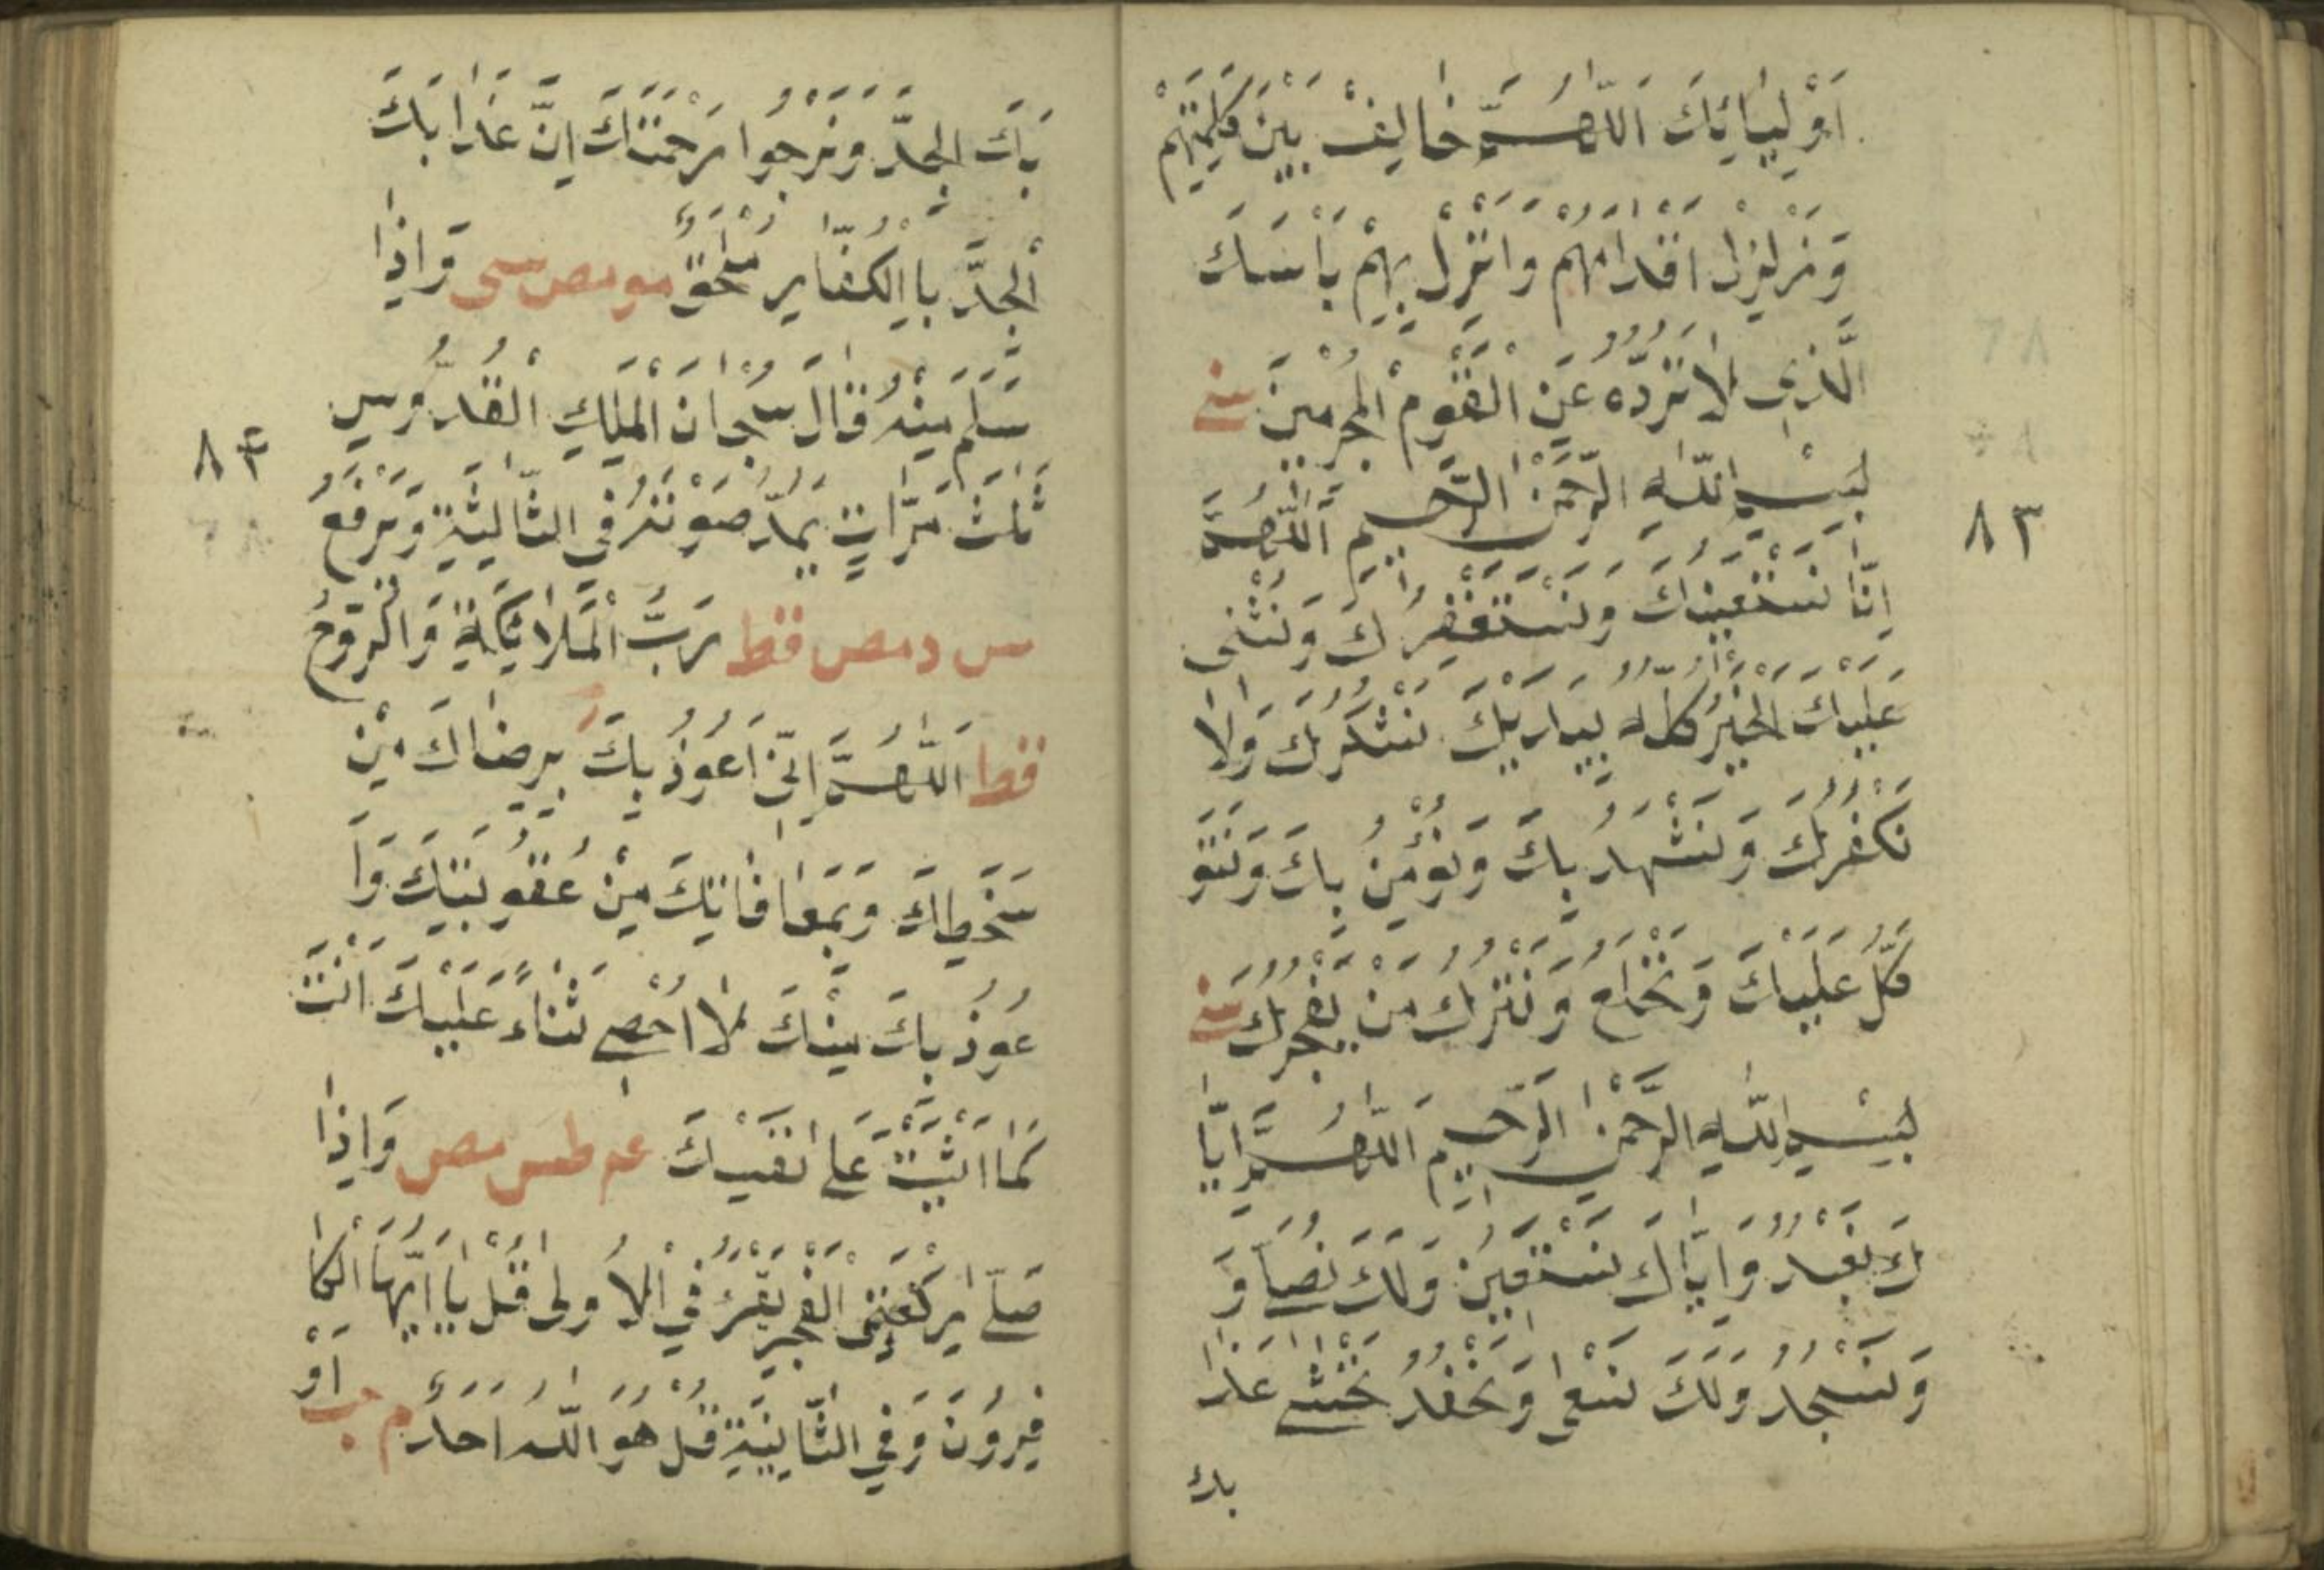 اَوْلِيَائِكَ اَللّٰهُمَّ خَالِفْ بَيْنَ كَلِمَتِهِمْ
وَزَلْزِلْ اَقْدَامَهُمْ وَاَنْزِلْ بِهِمْ بَاْسَكَ
الَّذِي لَا تَرُدُّهُ عَنِ الْقَوْمِ الْمُجْرِمِينَ سنى
بِسْمِ اللّٰهِ الرَّحْمٰنِ الرَّحِيمِ اَللّٰهُمَّ
اِنَّا نَسْتَعِينُكَ وَنَسْتَغْفِرُكَ وَنُثْنِى
عَلَيْكَ الْخَيْرَ كُلَّهُ نَشْكُرُكَ وَلَا
نَكْفُرُكَ وَنَشْهَدُ بِكَ وَنُؤْمِنُ بِكَ وَنَتَوَ
كَّلُ عَلَيْكَ وَنَخْلَعُ وَنَتْرُكُ مَنْ يَفْجُرُكَ سنى
بِسْمِ اللّٰهِ الرَّحْمٰنِ الرَّحِيمِ اَللّٰهُمَّ اِيَّا
كَ نَعْبُدُ وَاِيَّاكَ نَسْتَعِينُ وَلَكَ نُصَلِّي وَ
وَنَسْجُدُ وَلَكَ نَسْعٰى وَنَحْفِدُ نَخْشٰى عَذَا
بك
٨٣
بَكَ الْجِدَّ وَنَرْجُوا رَحْمَتَكَ اِنَّ عَذَابَكَ
الْجِدَّ بِالْكُفَّارِ مُلْحَقٌ مو مص سى وَاِذَا
سَلَّمَ مِنْهُ قَالَ سُبْحَانَ الْمَلِكِ الْقُدُّوسِ
ثَلٰثَ مَرَّاتٍ يَمُدُّ صَوْتَهُ فِى الثَّالِثَةِ وَيَرْفَعُ
س د مص قط رَبُّ الْمَلَائِكَةِ وَالرُّوحِ
قط اَللّٰهُمَّ اِنِّى اَعُوذُ بِكَ بِرِضَاكَ مِنْ
سَخَطِكَ وَبِمُعَافَاتِكَ مِنْ عُقُوبَتِكَ وَاَ
عُوذُ بِكَ مِنْكَ لَا اُحْصِي ثَنَاءً عَلَيْكَ اَنْتَ
كَمَا اَثْنَيْتَ عَلٰى نَفْسِكَ عه طس مص وَاِذَا
صَلّٰى رَكْعَتَىِ الْفَجْرِ يَقْرَءُ فِي الْاُولٰى قُلْ يَا اَيُّهَا الْكَا
فِرُونَ وَفِي الثَّانِيَةِ قُلْ هُوَ اللّٰهُ اَحَدٌ م حب اَوْ
٨٤